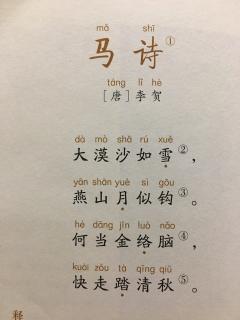 mǎ shī
马诗①
táng lǐ hè
[唐]李贺
dà mò shā rú xuě
大漠沙如雪②,
yān shān yuè sì gōu
燕山月似钩③。
hé dāng jīn luò nǎo
何当金络脑④,
kuài zǒu tà qīng qiū
快走踏清秋⑤。
释